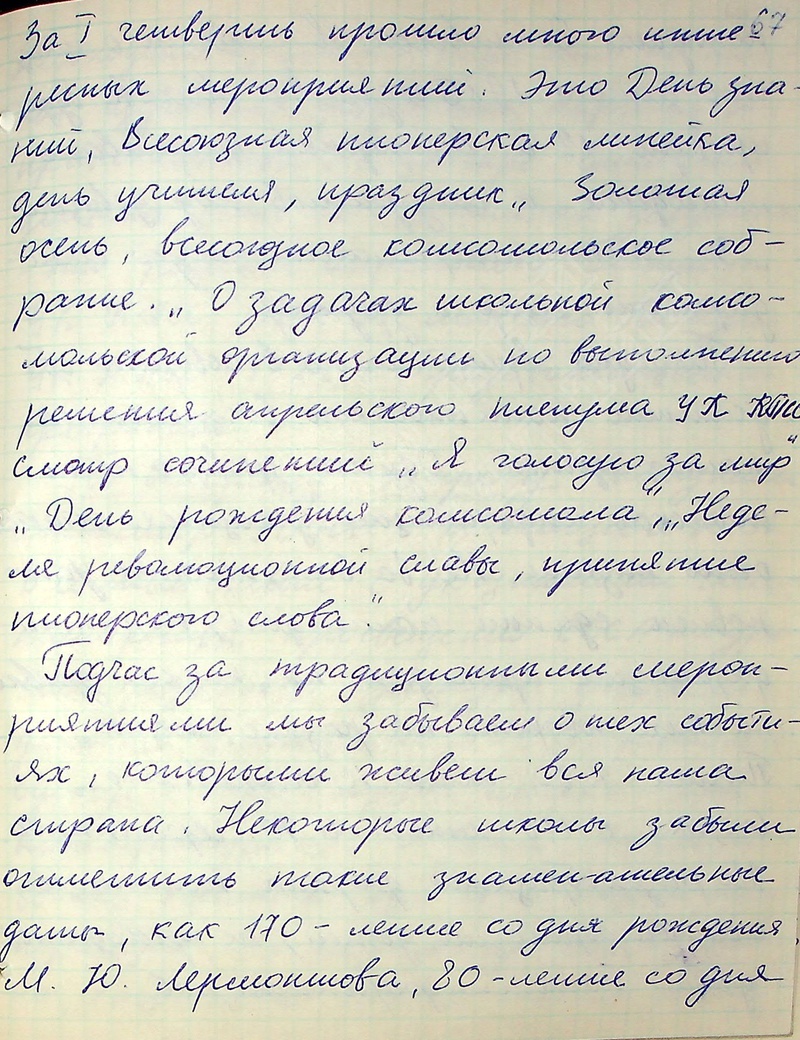 67
За I четверть прошло много инте
ресных мероприятий. Это День зна-
ний, Всесоюзная пионерская линейка,
день учителя, праздник „ Золотая
осень, всесоюдное комсомольское соб-
рание. „ О задачах школьной комсо-
мольской организации по выполнению
решения апрельского пленума ЦК КПСС
смотр сочинений „Я голосую за мир"
„День рождения комсомола", „Неде-
ля революционной славы, принятие
пионерского слова".
Подчас за традиционными мероп-
риятиями мы забываем о тех событи-
ях, которыми живет вся наша
страна. Некоторые школы забыли
отметить такие знаменательные
даты, как 170-летие со дня рождения
М. Ю. Лермонтова, 80-летие со дня